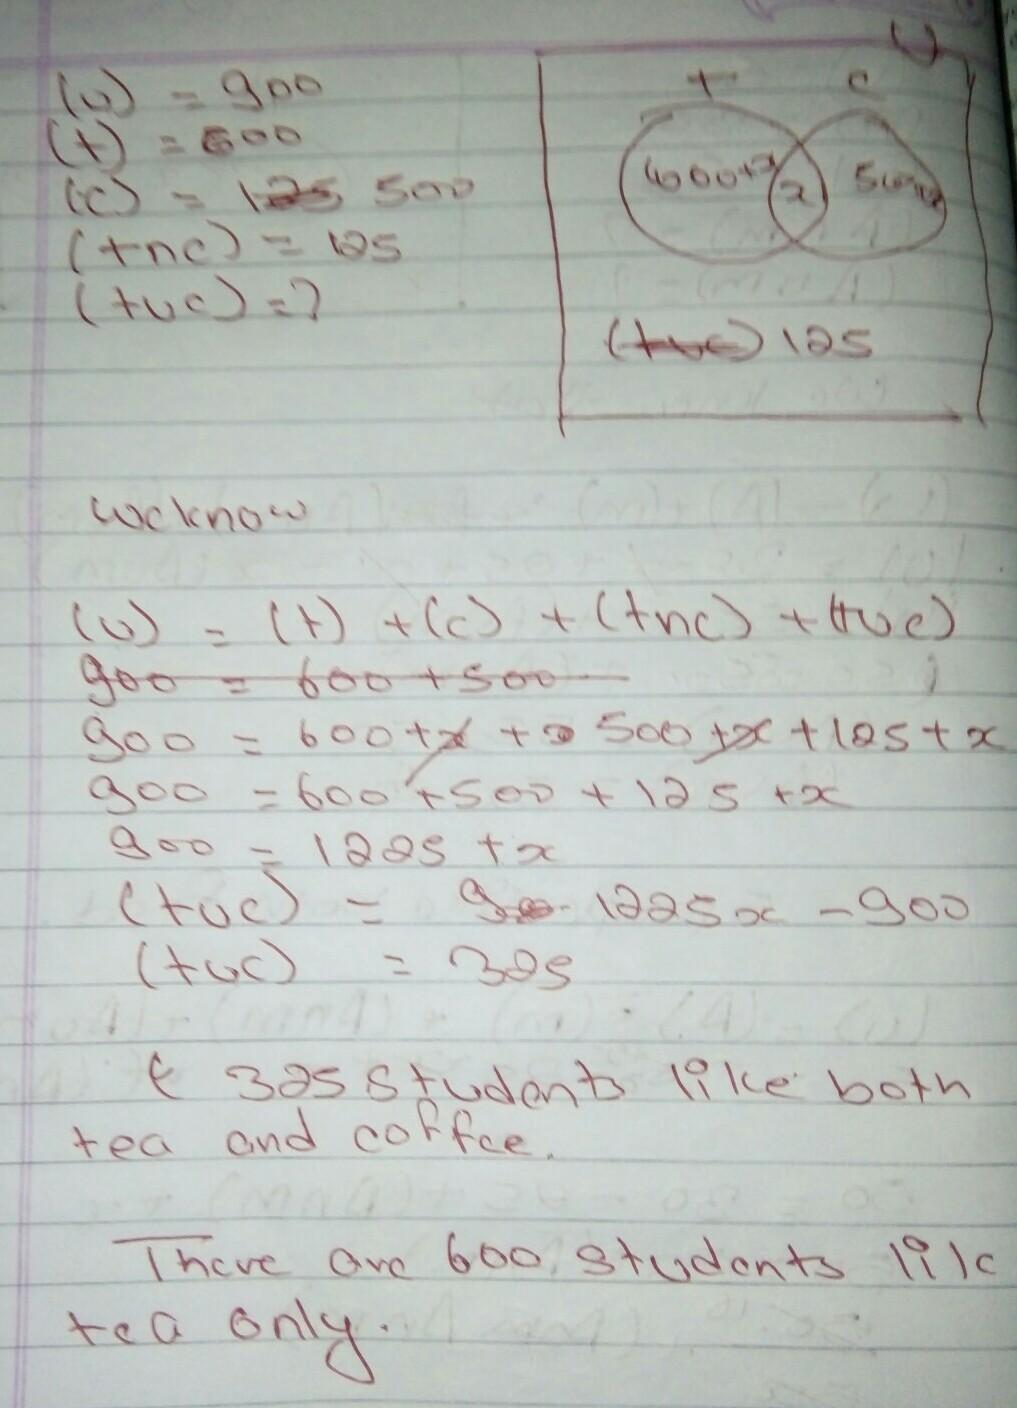 (u) = 900
(t) = 600
(c) = 125 500
(tnc) = 125
(tuc) = ?
U
t c
600+x x
(tuc) 125
we know
(u) = (t) + (c) + (tnc) + (tuc)
900 = 600 + 500
900 = 600+x + 500+x + 125+x
900 = 600 + 500 + 125 + x
900 = 1225 + x
(tuc) = 1225x - 900
(tuc) = 325
325 students like both
tea and coffee.
There are 600 students like
tea only.